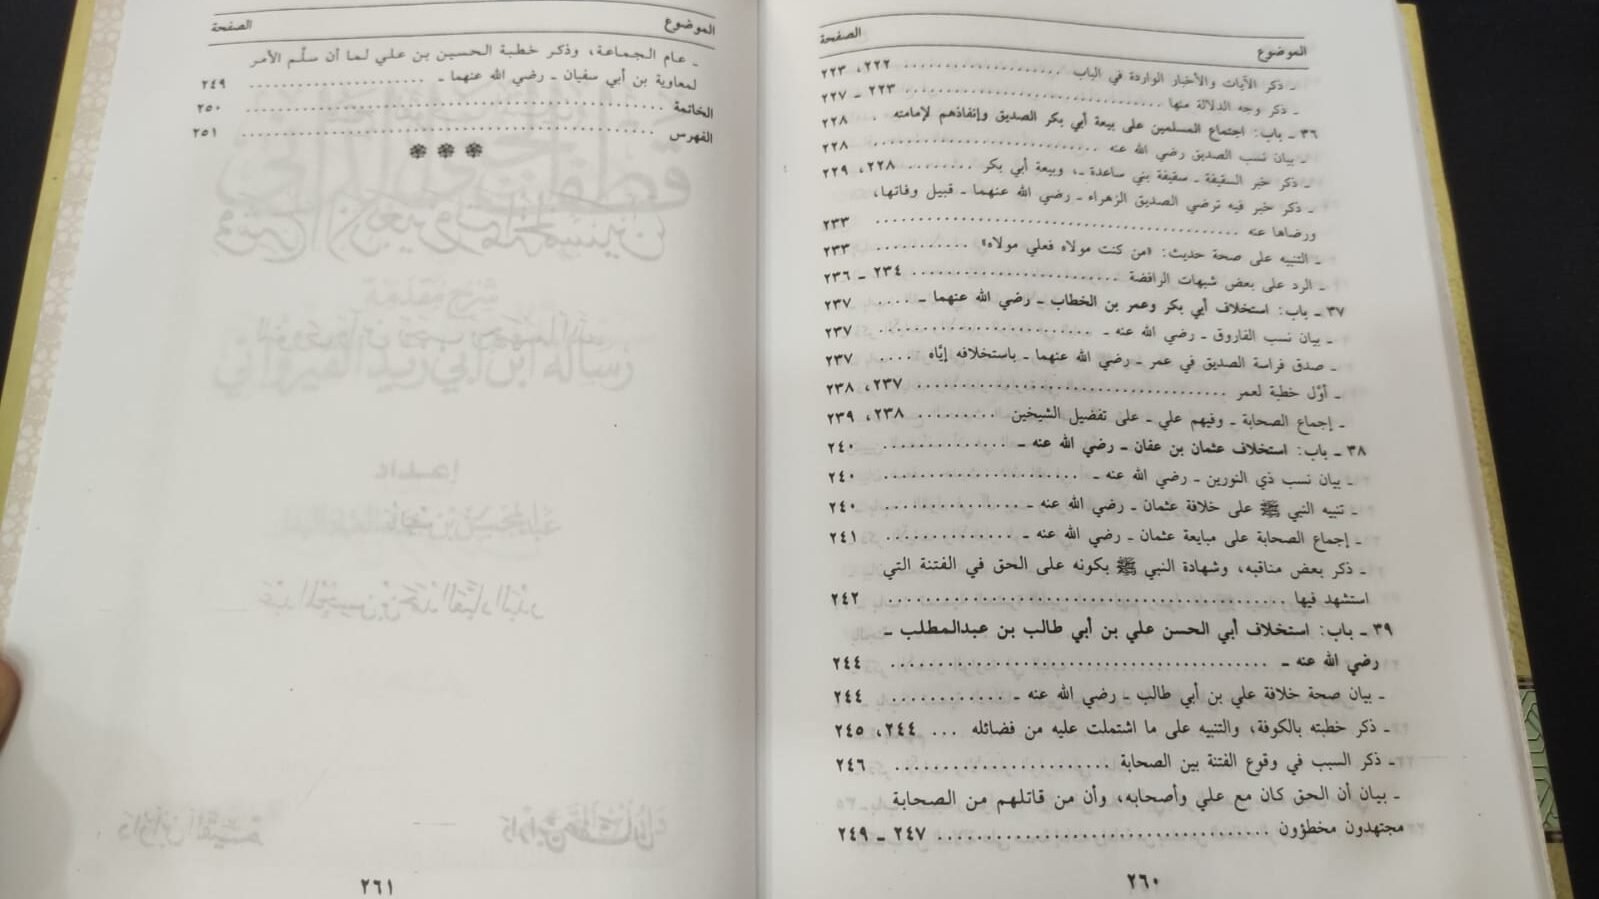 الموضوع الصفحة
ـ ذكر الآيات والأخبار الواردة في الباب .................... ٢٢٢، ٢٢٣
ـ ذكر وجه الدلالة منها .............................. ٢٢٣ ـ ٢٢٧
٣٦ ـ باب: اجتماع المسلمين على بيعة أبي بكر الصديق وإنفاذهم لإمامته . ٢٢٨
ـ بيان نسب الصديق رضي الله عنه .......................... ٢٢٨
ـ ذكر خبر السقيفة ـ سقيفة بني ساعدة ـ، وبيعة أبي بكر ........ ٢٢٨، ٢٢٩
ـ ذكر خبر فيه ترضي الصديق الزهراء ـ رضي الله عنهما ـ قبيل وفاتها،
ورضاها عنه .......................................... ٢٣٣
ـ التنبيه على صحة حديث: «من كنت مولاه فعلي مولاه» ........... ٢٣٣
ـ الرد على بعض شبهات الرافضة ........................ ٢٣٤ ـ ٢٣٦
٣٧ ـ باب: استخلاف أبي بكر وعمر بن الخطاب ـ رضي الله عنهما ـ ..... ٢٣٧
ـ بيان نسب الفاروق ـ رضي الله عنه ـ ........................ ٢٣٧
ـ صدق فراسة الصديق في عمر ـ رضي الله عنهما ـ باستخلافه إيَّاه .... ٢٣٧
ـ أوَّل خطبة لعمر .................................... ٢٣٧، ٢٣٨
ـ إجماع الصحابة ـ وفيهم علي ـ على تفضيل الشيخين ......... ٢٣٨، ٢٣٩
٣٨ ـ باب: استخلاف عثمان بن عفان ـ رضي الله عنه ـ .............. ٢٤٠
ـ بيان نسب ذي النورين ـ رضي الله عنه ـ ...................... ٢٤٠
ـ تنبيه النبي ﷺ على خلافة عثمان ـ رضي الله عنه ـ ................ ٢٤٠
ـ إجماع الصحابة على مبايعة عثمان ـ رضي الله عنه ـ .............. ٢٤١
ـ ذكر بعض مناقبه، وشهادة النبي ﷺ بكونه على الحق في الفتنة التي
استشهد فيها ............................................ ٢٤٢
٣٩ ـ باب: استخلاف أبي الحسن علي بن أبي طالب بن عبدالمطلب ـ
رضي الله عنه ـ .......................................... ٢٤٤
ـ بيان صحة خلافة علي بن أبي طالب ـ رضي الله عنه ـ ............ ٢٤٤
ـ ذكر خطبته بالكوفة، والتنبيه على ما اشتملت عليه من فضائله ... ٢٤٤، ٢٤٥
ـ ذكر السبب في وقوع الفتنة بين الصحابة ...................... ٢٤٦
ـ بيان أن الحق كان مع علي وأصحابه، وأن من قاتلهم من الصحابة
مجتهدون مخطؤون .................................. ٢٤٧ ـ ٢٤٩
٢٦٠
الموضوع الصفحة
ـ عام الجماعة، وذكر خطبة الحسين بن علي لما أن سلَّم الأمر
لمعاوية بن أبي سفيان ـ رضي الله عنهما ـ .................... ٢٤٩
الخاتمة .............................................. ٢٥٠
الفهرس .............................................. ٢٥١
٢٦١